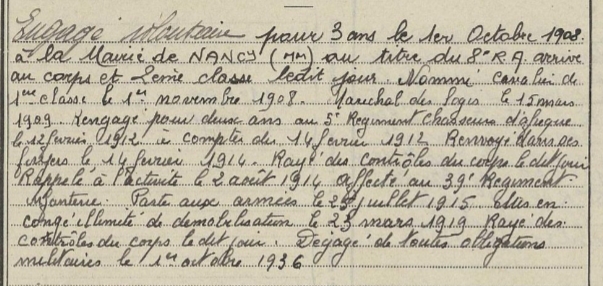 Engagé volontaire pour 3 ans le 1er Octobre 1908
à la Mairie de NANCY (Mm) au titre du 8e R A. arrivé
au corps et 2ème classe ledit jour. Nommé cavalier de
1ère classe le 1er novembre 1908. Maréchal des logis le 15 mars
1909. Rengagé pour deux ans au 5e Régiment Chasseurs d'afrique
le 12 fevrier 1912 à compter du 14 fevrier 1912 Renvoyé dans ses
foyers le 14 fevrier 1914. Rayé des contrôles du corps le dit jour
Rappelé à l'activité le 2 août 1914 affecté au 39e Régiment
infanterie. Parti aux armées le 25 juillet 1915. Mis en
congé illimité de démobilisation le 23 mars 1919 Rayé des
contrôles du corps le dit jour. Dégagé de toutes obligations
militaires le 1er octobre 1936